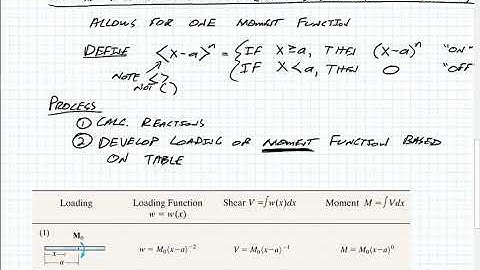 ALLOWS FOR ONE MOMENT FUNCTION
DEFINE <x-a>ⁿ = { IF X ≥ a, THEN (x-a)ⁿ "ON"
{ IF X < a, THEN 0 "OFF"
NOTE < >
NOT ( )
PROCESS
① CALC. REACTIONS
② DEVELOP LOADING OR MOMENT FUNCTION BASED
ON TABLE
Loading Loading Function Shear V = ∫w(x)dx Moment M = ∫Vdx
w = w(x)
(1) M₀
w = M₀⟨x−a⟩⁻² V = M₀⟨x−a⟩⁻¹ M = M₀⟨x−a⟩⁰
x
a